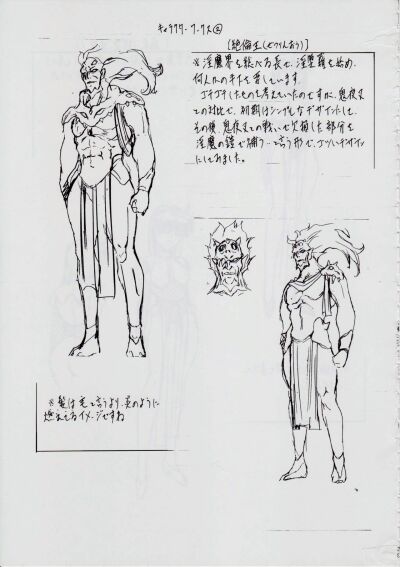 キャラクターワークス②
[絶倫王(ぜつりんおう)]
※淫魔界を統べる長で、淫堕羅を始め、
何人かの子を量しています。
ゴチゴチしたものを考えていたのですが、鬼夜叉
との対比で、初期はシンプルなデザインにして、
その後、鬼夜叉との戦いで欠損した部分を
淫魔の鎧で補う…と言う形で、ゴツいデザイン
にしてみました。
※髪は毛と言うより、炎のように
燃えてるイメージですね